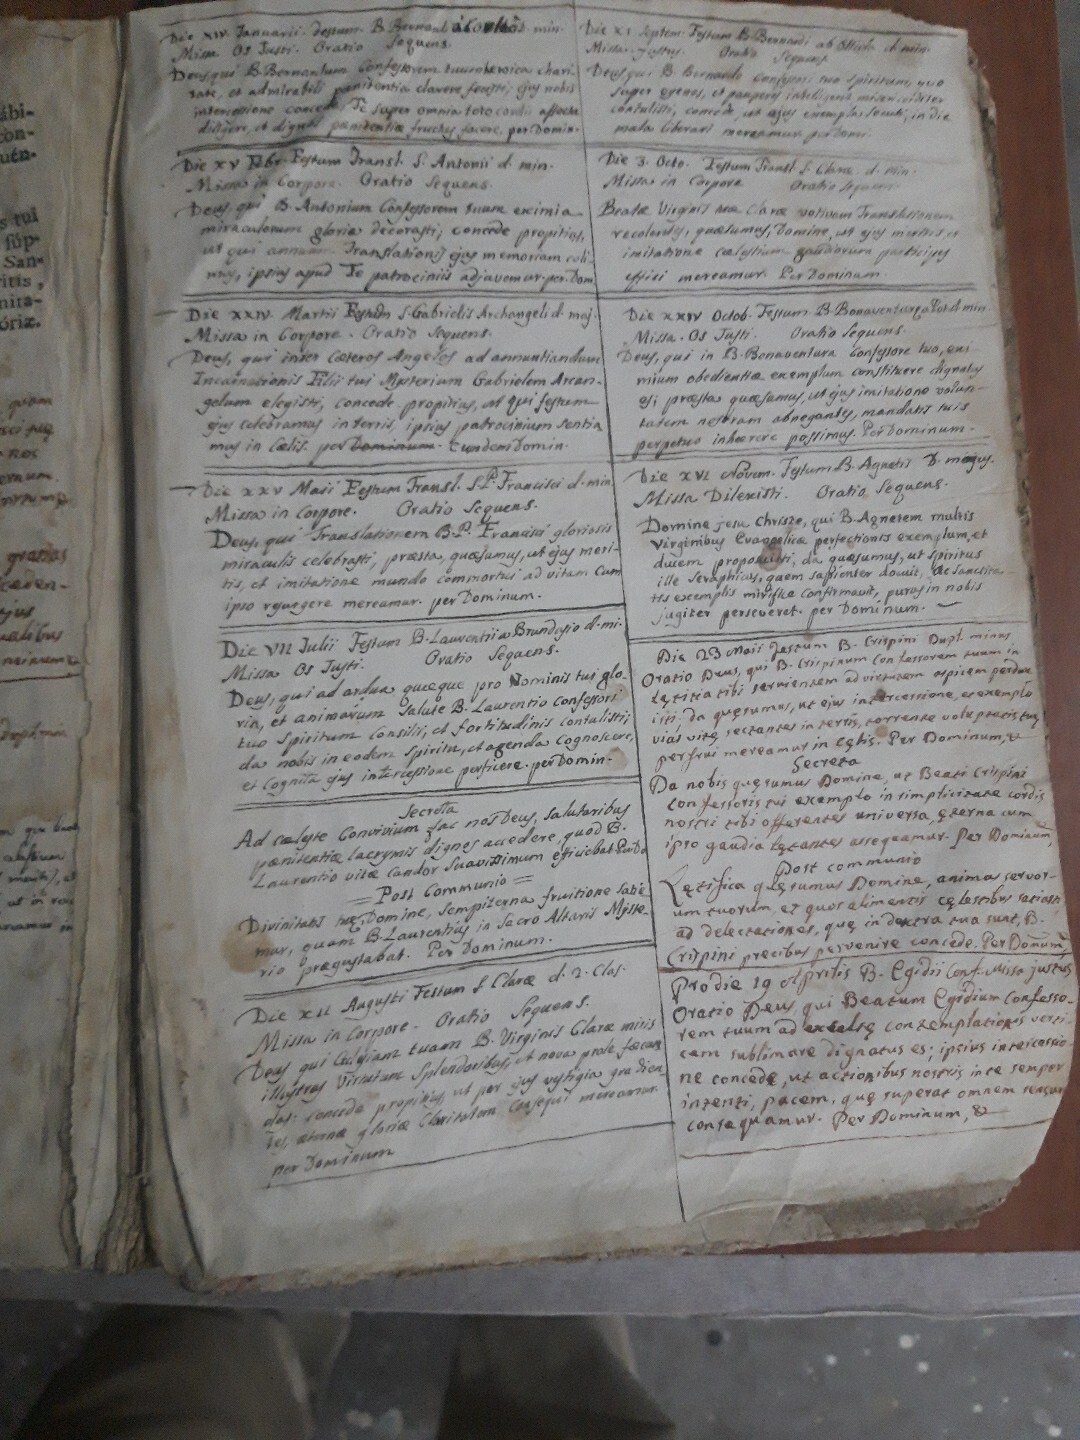 Die XIV Januarii. festum B. Bernardi à Corlion d. min.
Missa Os Justi. Oratio Sequens.
Deus, qui B. Bernardum Confessorem tuum heroica chari-
tate, et admirabili pœnitentia clarere fecisti; ejus nobis
intercessione concede Te super omnia toto corde affectu
diligere, et dignos pœnitentiæ fructus facere. per Domin.
Die XV Febr. Festum Transl. S. Antonii d. min.
Missa in Corpore. Oratio Sequens.
Deus, qui B. Antonium Confessorem tuum eximia
miraculorum gloria decorasti; concede propitius,
ut qui annuam Translationis ejus memoriam coli-
mus, ipsius apud Te patrociniis adjuvemur. per Dom.
Die XXIV Martii Festum S. Gabrielis Archangeli d. maj.
Missa in Corpore. Oratio Sequens.
Deus, qui inter cæteros Angelos ad annuntiandum
Incarnationis Filii tui Mysterium Gabrielem Arcan-
gelum elegisti, concede propitius, ut qui festum
ejus celebramus in terris, ipsius patrocinium sentia
mus in Cœlis. per Dominum. Eundem Domin.
Die XXV Maii Festum Transl. S. P. Francisci d. min.
Missa in Corpore. Oratio Sequens.
Deus, qui Translationem B. P. Francisci gloriosis
miraculis celebrasti, præsta, quæsumus, ut ejus meri-
tis, et imitatione mundo commortui ad vitam Cum
ipso resurgere mereamur. per Dominum.
Die VII Julii Festum B. Laurentii a Brundusio d. mi.
Missa Os Justi. Oratio Sequens.
Deus, qui ad ardua quæque pro Nominis tui glo-
ria, et animarum Salute B. Laurentio Confessori
tuo Spiritum Consilii, et fortitudinis contulisti;
da nobis in eodem Spiritu, et agenda Cognoscere,
et Cognita ejus intercessione perficere. per Domin.
Secreta
Ad cœleste Convivium fac nos Deus, Salutaribus
pœnitentiæ lacrymis dignos accedere, quod B.
Laurentio vitæ candor Suavissimum efficiebat. Per Do
= Post Communio =
Divinitatis tuæ Domine, sempiterna fruitione satie
mur, quam B. Laurentius in Sacro Altaris Myste-
rio prægustabat. Per Dominum.
Die XII Augusti Festum S. Claræ d. 2. Clas.
Missa in Corpore. Oratio Sequens.
Deus qui Ecclesiam tuam B. Virginis Claræ miris
illustras Virtutum Splendoribus, et nova prole fœcun
das: concede propitius, ut per ejus vestigia gradien
tes, æternæ gloriæ Claritatem Consequi mereamur.
per Dominum
Festum B. Bernardi ab Offida d. min.
Missa. Justus. Oratio Sequens
Deus, qui B. Bernardo Confessori tuo Spiritum, quo
super egenos, et pauperes intelligeret misericorditer
contulisti, concede, ut ejus exempla secuti, in die
mala liberari mereamur per Domi.
Die 3. Octo. Festum Transl. S. Claræ d. min.
Missa in Corpore Oratio Sequens.
Beatæ Virginis tuæ Claræ votivam Translationem
recolentes, quæsumus, Domine, ut ejus meritis, et
imitatione cœlestium gaudiorum participes
effici mereamur. Per Dominum.
Die XXIV Octob. Festum B. Bonaventuræ a Pot. d. min
Missa. Os Justi. Oratio Sequens.
Deus, qui in B. Bonaventura Confessore tuo, exi-
mium obedientiæ exemplum constituere dignatus
es; præsta quæsumus, ut ejus imitatione volun-
tatem nostram abnegantes, mandatis tuis
perpetuo inhærere possimus. Per Dominum.
Die XVI Novem. Festum B. Agnetis D. majus.
Missa Dilexisti. Oratio Sequens.
Domine Jesu Christe, qui B. Agnetem multis
Virginibus Evangelicæ perfectionis exemplum, et
ducem proposuisti, da quæsumus, ut Spiritus
ille Seraphicus, quem sapienter docuit, ac sanctita-
tis exemplis mirifice confirmavit, purus in nobis
jugiter perseveret. per Dominum.
Die 23 Maii Festum B. Crispini Dupl. minus
Oratio Deus, qui B. Crispinum Confessorem tuum in
lętitia tibi servientem ad virtutem apicem perdu
xisti: da quęsumus, ut ejus intercessione, et exemplo
vias vitę sectantes in terris, torrente voluptatis tuę
perfrui mereamur in cęlis. Per Dominum, &
Secreta
Da nobis quęsumus Domine, ut Beati Crispini
confessoris tui exemplo in simplicitate cordis
nostri tibi offerentes universa, ęterna cum
ipso gaudia lętantes assequamur. Per Dominum,
Post communio
Lętifica quęsumus Domine, animas servor-
um tuorum, et quos alimentis cęlestibus satiasti
ad delectationes, quę in dextra tua sunt, B.
Crispini precibus pervenire concede. Per Domum,
Pro die 29 Aprilis B. Egidii Conf. Missa justus
Oratio Deus, qui Beatum Egidium Confesso-
rem tuum ad excelsę contemplationis verti-
cem sublimare dignatus es; ipsius intercessio-
ne concede, ut actionibus nostris in te semper
intenti, pacem, quę superat omnem sensum
consequamur. Per Dominum, &